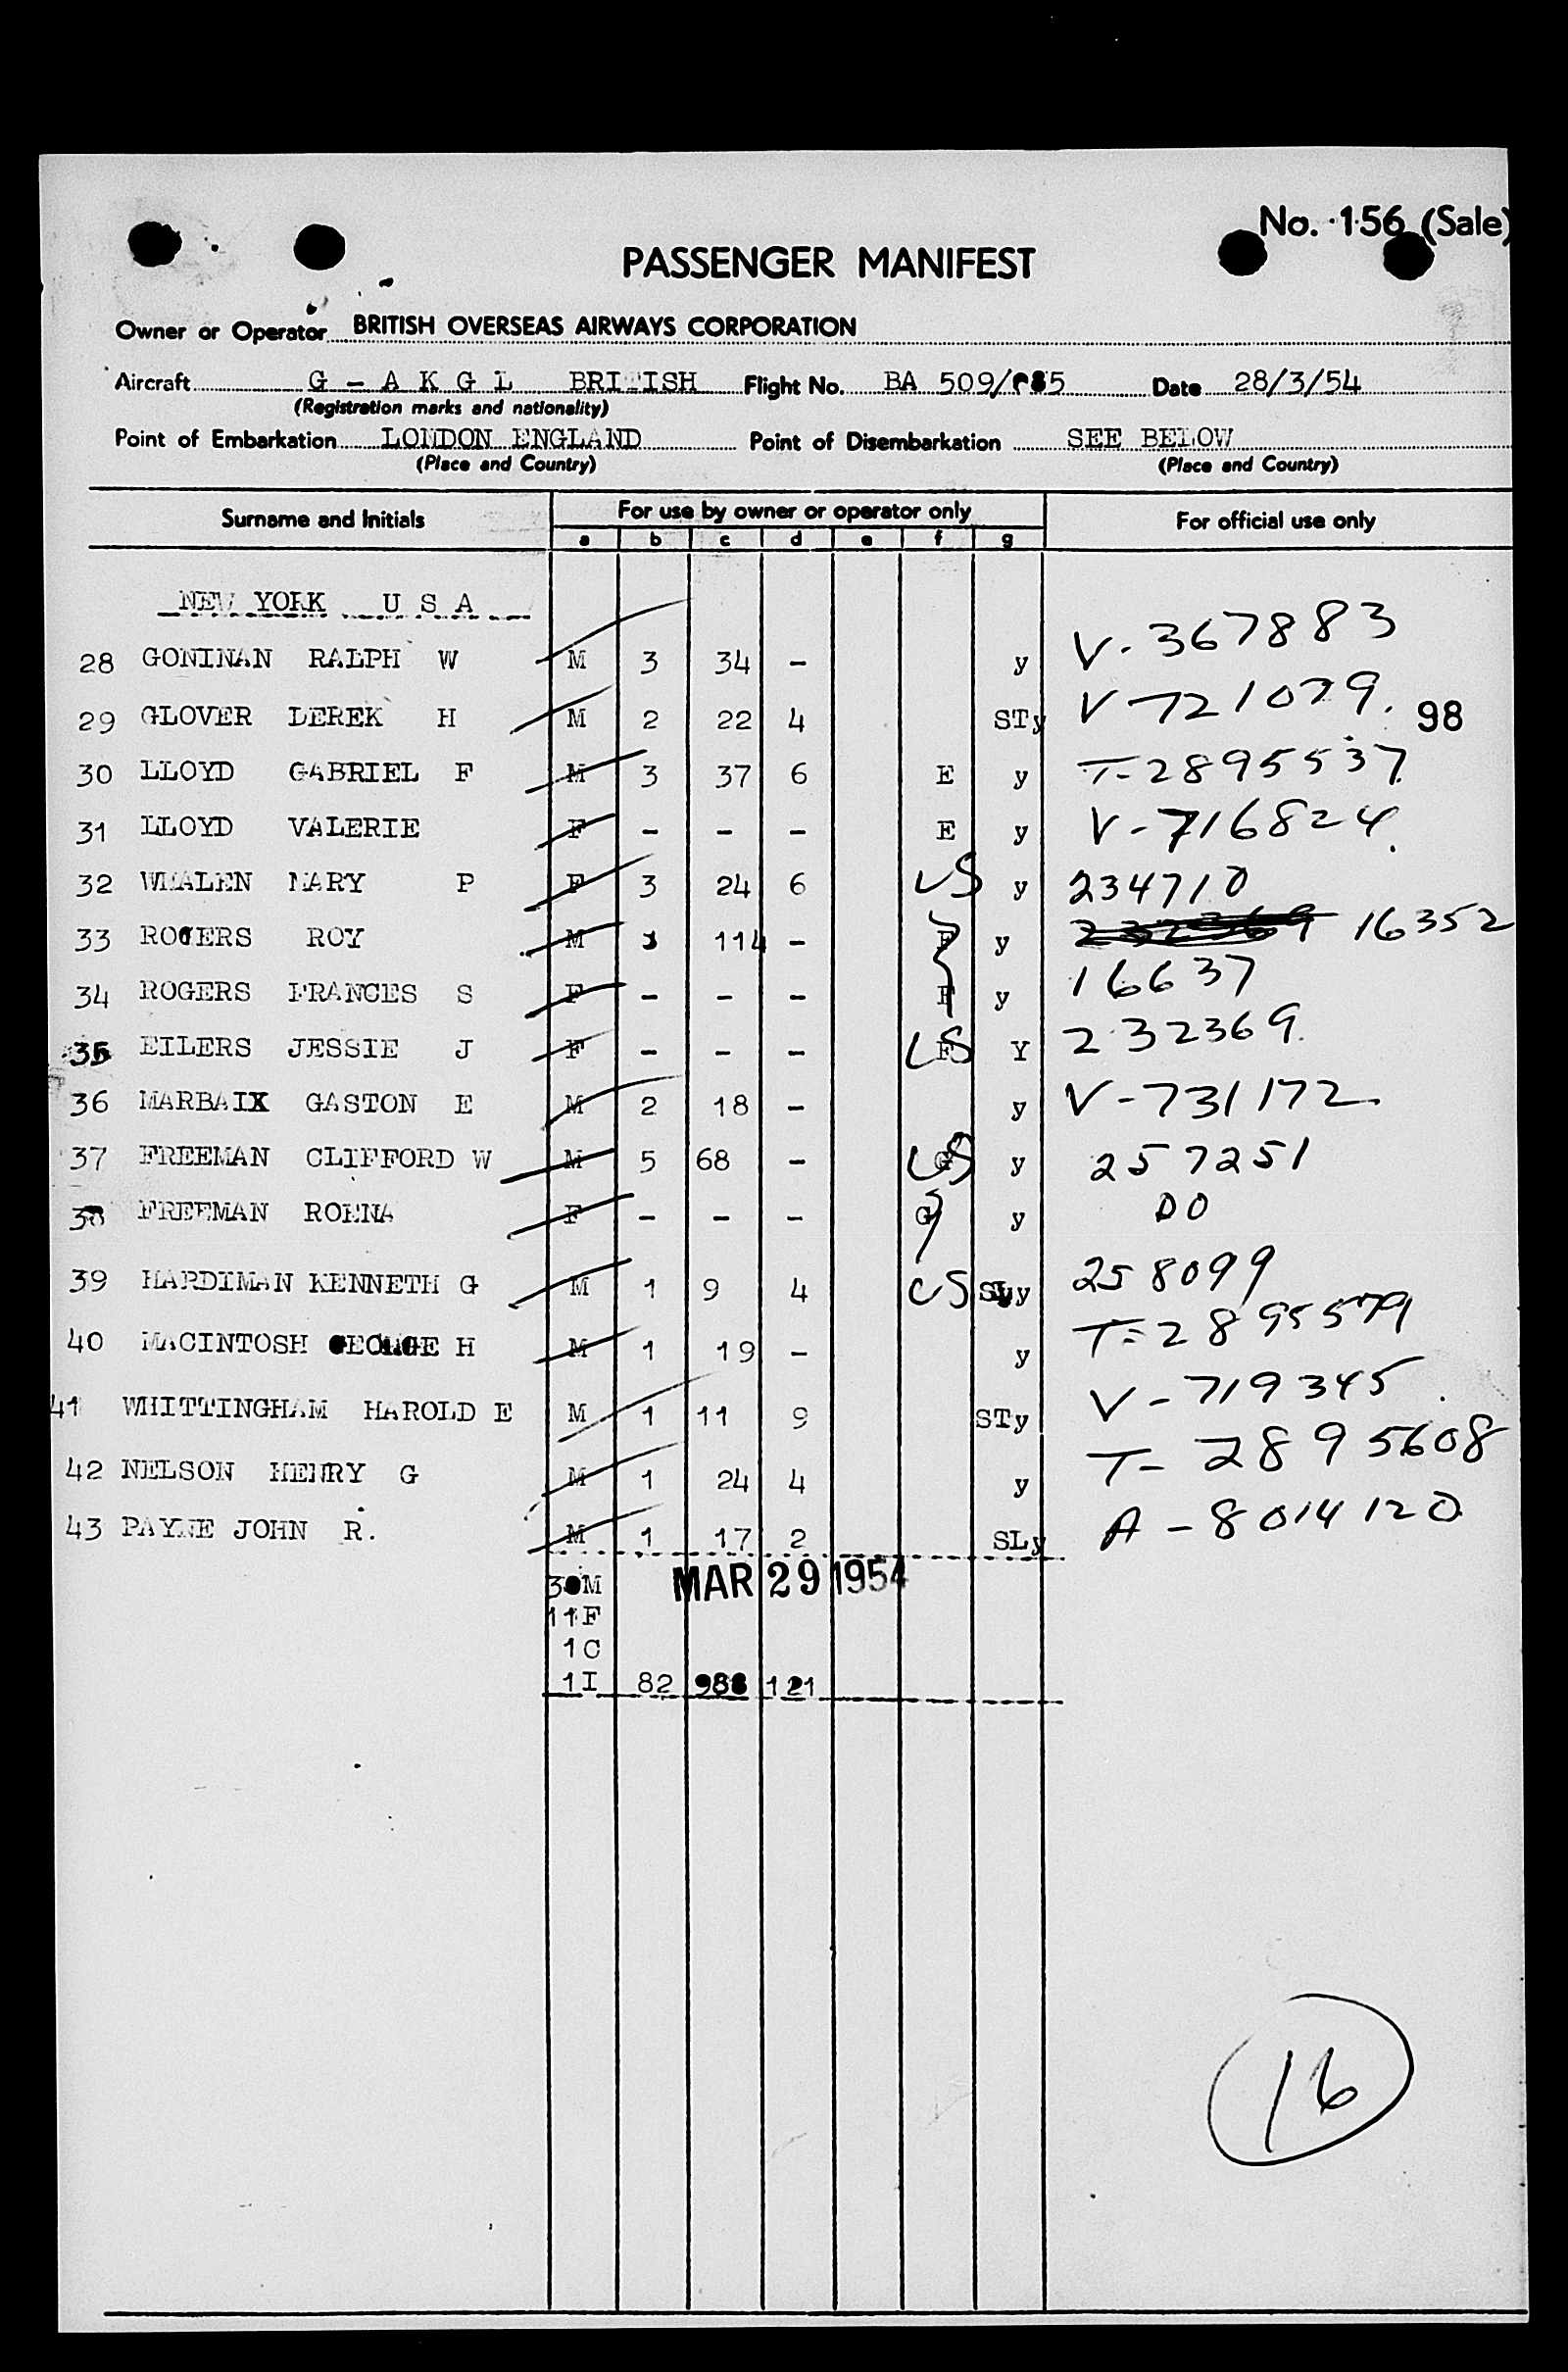 No. 156 (Sale)
PASSENGER MANIFEST
Owner or Operator BRITISH OVERSEAS AIRWAYS CORPORATION
Aircraft G - A K G L BRITISH Flight No. BA 509/085 Date 28/3/54
(Registration marks and nationality)
Point of Embarkation LONDON ENGLAND Point of Disembarkation SEE BELOW
(Place and Country) (Place and Country)
Surname and Initials For use by owner or operator only For official use only
a b c d e f g
NEW YORK U S A
28 GONINAN RALPH W M 3 34 - y V-367883
29 GLOVER DEREK H M 2 22 4 STy V-721079. 98
30 LLOYD GABRIEL F M 3 37 6 E y T-2895537
31 LLOYD VALERIE F - - - E y V-716824.
32 WHALEN MARY P F 3 24 6 US y 234710
33 ROGERS ROY M 3 114 - F y 232369 16352
34 ROGERS FRANCES S F - - - F y 16637
35 EILERS JESSIE J F - - - US Y 232369.
36 MARBAIX GASTON E M 2 18 - y V-731172.
37 FREEMAN CLIFFORD W M 5 68 - US y 257251
38 FREEMAN ROENA F - - - G y DO
39 HARDIMAN KENNETH G M 1 9 4 US SLy 258099
40 MACINTOSH GEORGE H M 1 19 - y T=2895579
41 WHITTINGHAM HAROLD E M 1 11 9 STy V-719345.
42 NELSON HENRY G M 1 24 4 y T-2895608
43 PAYNE JOHN R. M 1 17 2 SLy A-8014120
30M MAR 29 1954
11F
1C
1I 82 988 121
16